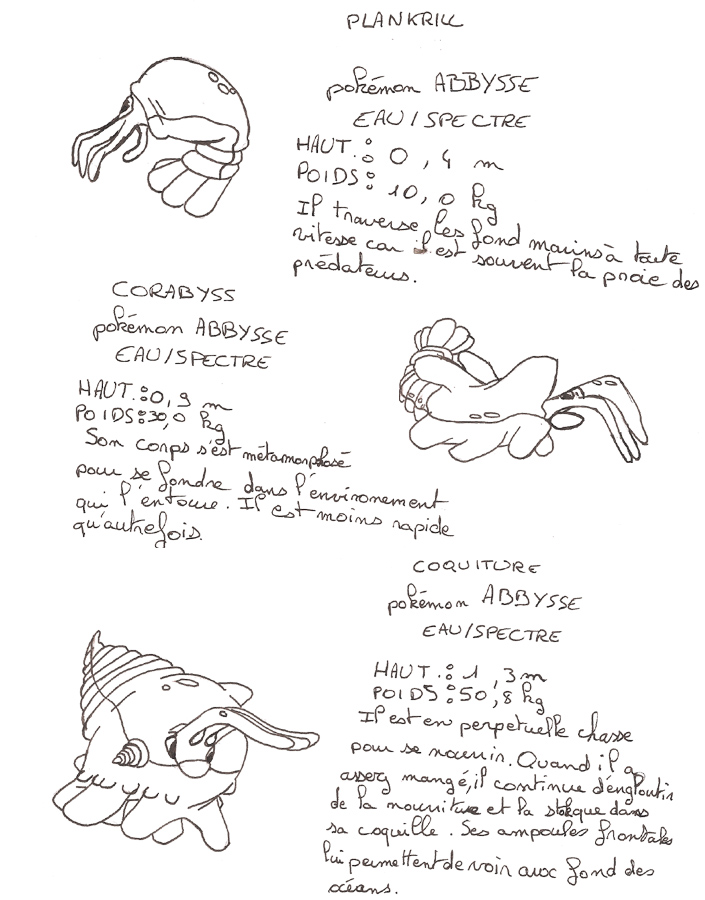 PLANKRILL
pokémon ABBYSSE
EAU/SPECTRE
HAUT.: 0,4 m
POIDS: 10,0 kg
Il traverse les fond marins à toute
vitesse car il est souvent la proie des
prédateurs.
CORABYSS
pokémon ABBYSSE
EAU/SPECTRE
HAUT.:0,9 m
POIDS:30,0 kg
Son corps s'est métamorphosé
pour se fondre dans l'environement
qui l'entoure. Il est moins rapide
qu'autrefois.
COQUITURE
pokémon ABBYSSE
EAU/SPECTRE
HAUT.: 1,3m
POIDS:50,8 kg
Il est en perpetuelle chasse
pour se nourrir. Quand il a
asserg mangé, il continue d'engloutir
de la nourriture et la stoque dans
sa coquille. Ses ampoules frontales
lui permettent de voir aux fond des
océans.